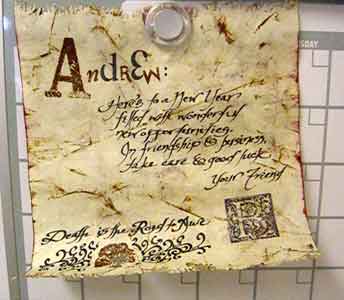 AndrEw:
SDAY
Here's to a New Year
filled with wonderful
new opportunities.
In friendship & business,
take care & good luck
Your Friend
Death is the Road to Awe